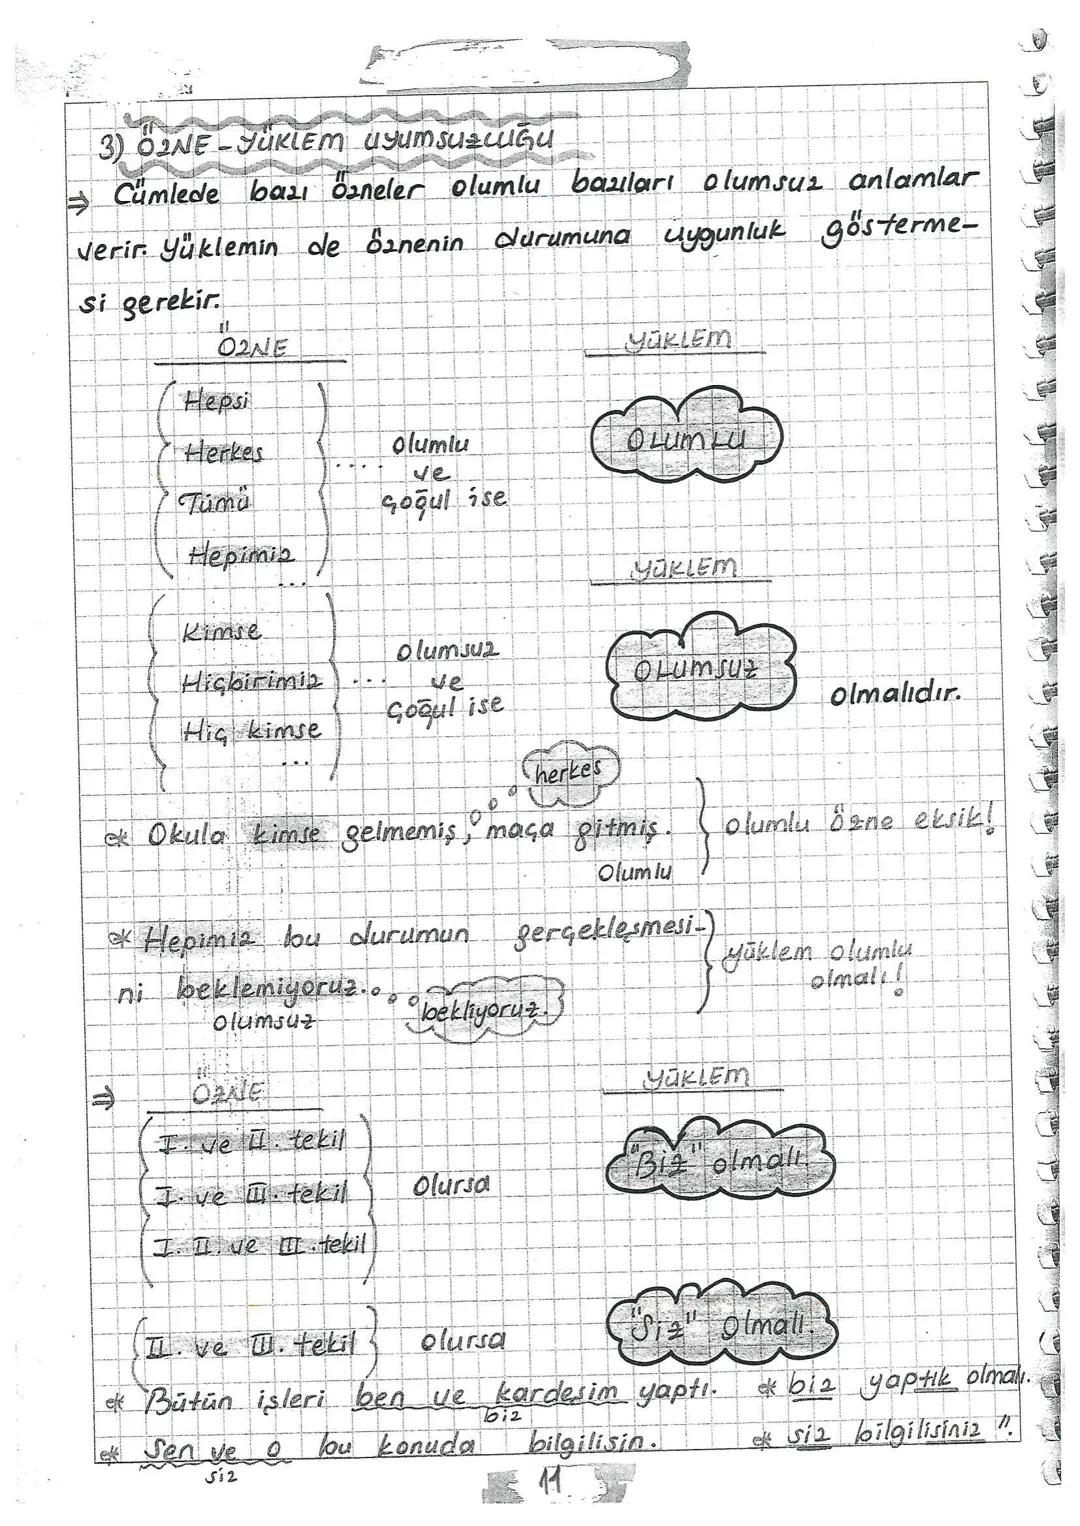 3) ÖZNE-YÜKLEM UYUMSUZLUĞU
⇒ Cümlede bazı özneler olumlu bazıları olumsuz anlamlar
verir. Yüklemin de öznenin durumuna uygunluk gösterme-
si gerekir.
ÖZNE YÜKLEM
Hepsi
Herkes
Tümü
Hepimiz
...
.... olumlu
ve
çoğul ise
OLUMLU
YÜKLEM
Kimse
Hiçbirimiz
Hiç kimse
...
... olumsuz
ve
çoğul ise
OLUMSUZ
olmalıdır.
herkes
* Okula kimse gelmemiş, maça gitmiş. olumlu özne eksik!
Olumlu
* Hepimiz bu durumun gerçekleşmesi-
ni beklemiyoruz. bekliyoruz.
olumsuz
yüklem olumlu
olmalı!
⇒ ÖZNE YÜKLEM
I. ve II. tekil
I. ve III. tekil
I. II. ve III. tekil
Olursa
"Biz" olmalı.
II. ve III. tekil olursa "Siz" olmalı.
* Bütün işleri ben ve kardeşim yaptı. * biz yaptık olmalı.
biz
* Sen ve o bu konuda bilgilisin. * siz bilgilisiniz ".
siz
11